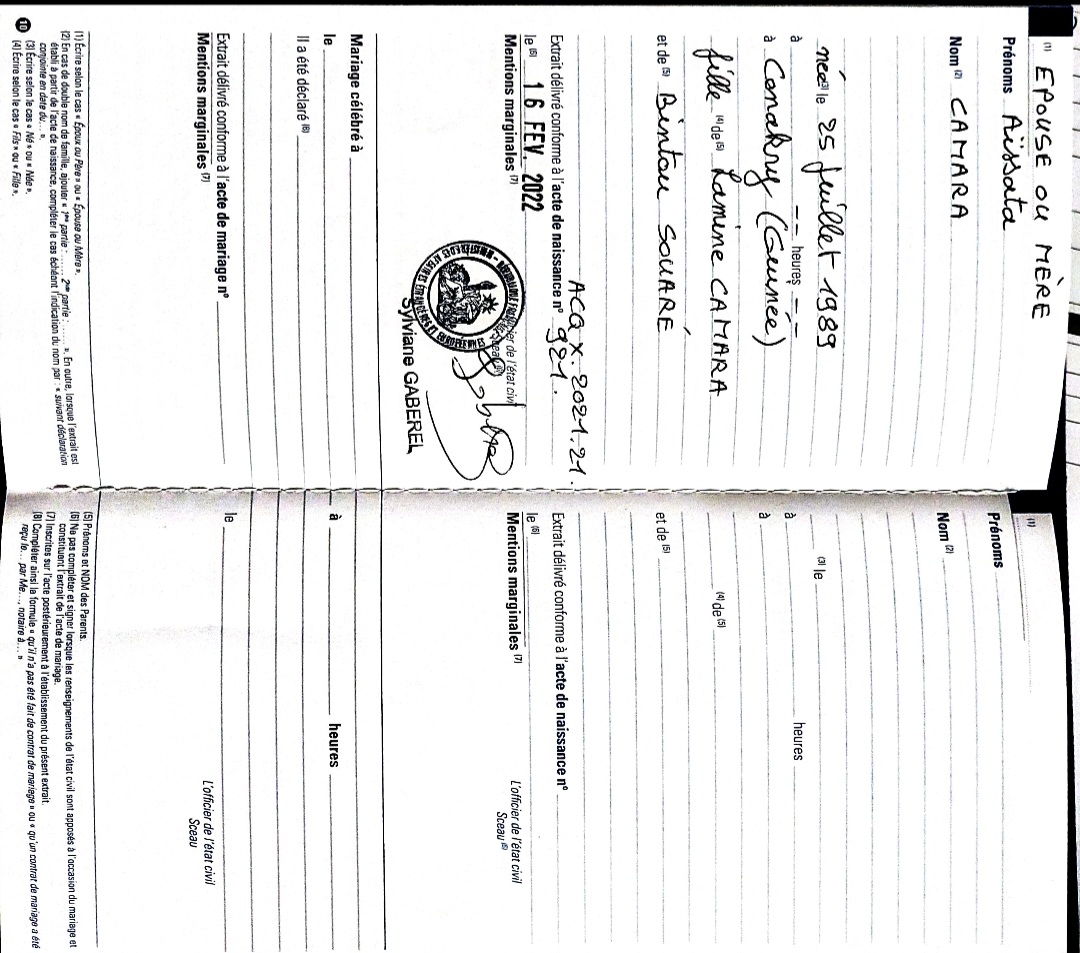 (1) EPOUSE OU MÈRE
Prénoms Aïssata
Nom (2) CAMARA
née (3) le 25 juillet 1989
à -- heures --
à Conakry (Guinée)
fille (4) de (5) Lamine CAMARA
et de (5) Bintou SOUARÉ
ACQ X. 2021.21.
Extrait délivré conforme à l'acte de naissance n° 921.
le (6) 16 FEV. 2022
Mentions marginales (7)
Sylviane GABEREL
Mariage célébré à
le
Il a été déclaré (8)
Extrait délivré conforme à l'acte de mariage n°
Mentions marginales (7)
(1) Écrire selon le cas « Époux ou Père » ou « Épouse ou Mère ».
(2) En cas de double nom de famille, ajouter « 1re partie : ...... 2nde partie : ...... ». En outre, lorsque l'extrait est
établi à partir de l'acte de naissance, compléter le cas échéant l'indication du nom par : « suivant déclaration
conjointe en date du... ».
(3) Écrire selon le cas « Né » ou « Née ».
(4) Écrire selon le cas « Fils » ou « Fille ».
10
(1)
Prénoms
Nom (2)
(3) le
à heures
à
(4) de (5)
et de (5)
Extrait délivré conforme à l'acte de naissance n°
le (6)
L'officier de l'état civil
Sceau (6)
Mentions marginales (7)
à heures
le
L'officier de l'état civil
Sceau
(5) Prénoms et NOM des Parents.
(6) Ne pas compléter et signer lorsque les renseignements de l'état civil sont apposés à l'occasion du mariage et
constituent l'extrait de l'acte de mariage.
(7) Inscrites sur l'acte postérieurement à l'établissement du présent extrait.
(8) Compléter ainsi la formule « qu'il n'a pas été fait de contrat de mariage » ou « qu'un contrat de mariage a été
reçu le... par Me..., notaire à... »